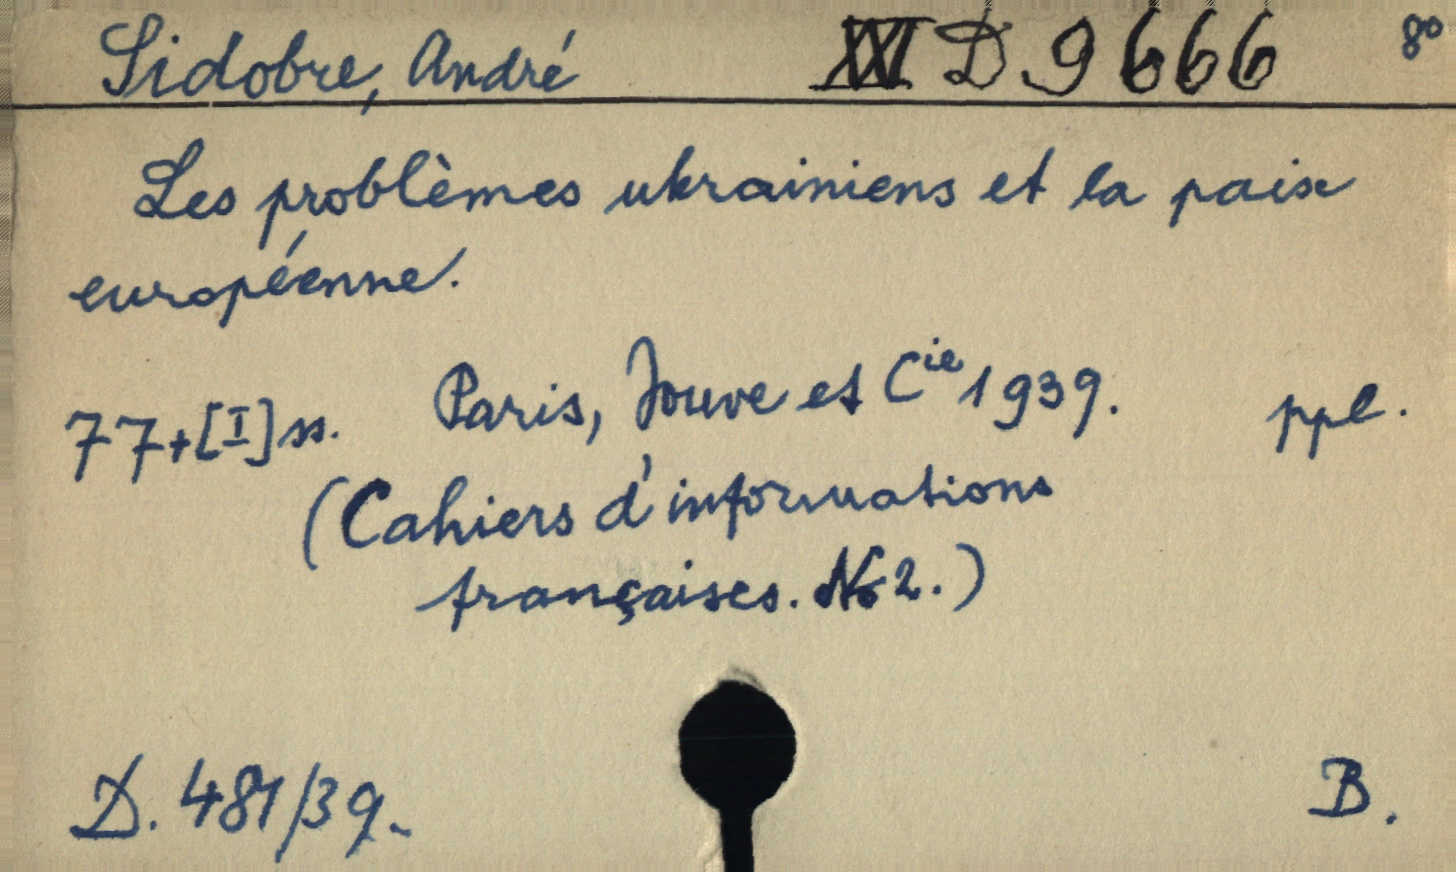 Sidobre, André XXI D 9666 8º
Les problèmes ukrainiens et la paix
européenne.
77+[I] ss. Paris, Jouve et Cie 1939. ppl.
(Cahiers d'informations
françaises. No 2.)
D. 481/39. B.